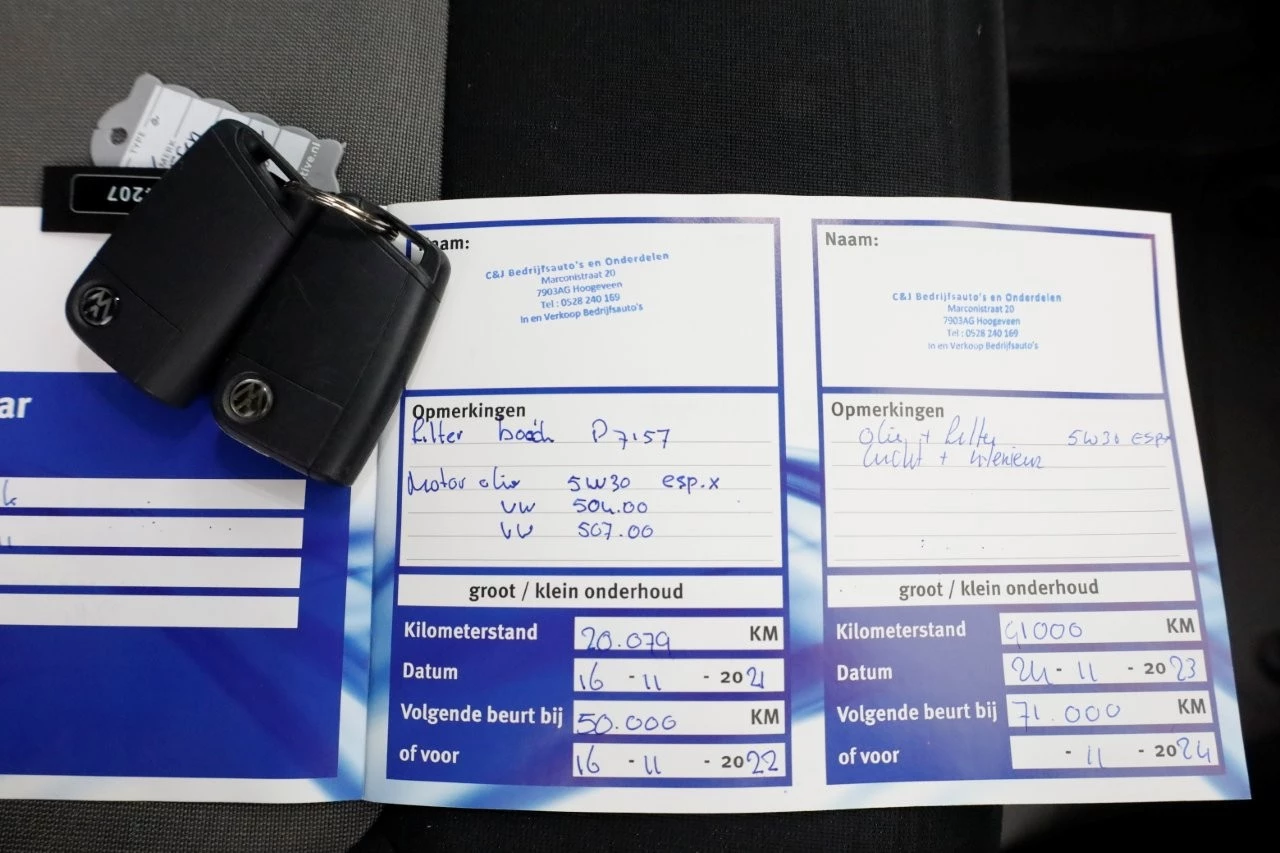 TYPE
MERK
tive.nl
207
ar
aam:
C&J Bedrijfsauto's en Onderdelen
Marconistraat 20
7903AG Hoogeveen
Tel : 0528 240 169
In en Verkoop Bedrijfsauto's
Opmerkingen
filter bosch P7157
Motor olie 5W30 esp.x
VW 504.00
VW 507.00
groot / klein onderhoud
Kilometerstand 20.079 KM
Datum 16 - 11 - 2021
Volgende beurt bij 50.000 KM
of voor 16 - 11 - 2022
Naam:
C&J Bedrijfsauto's en Onderdelen
Marconistraat 20
7903AG Hoogeveen
Tel : 0528 240 169
In en Verkoop Bedrijfsauto's
Opmerkingen
olie + filter 5W30 espx
lucht + interieur
groot / klein onderhoud
Kilometerstand 41000 KM
Datum 24 - 11 - 2023
Volgende beurt bij 71.000 KM
of voor - 11 - 2024